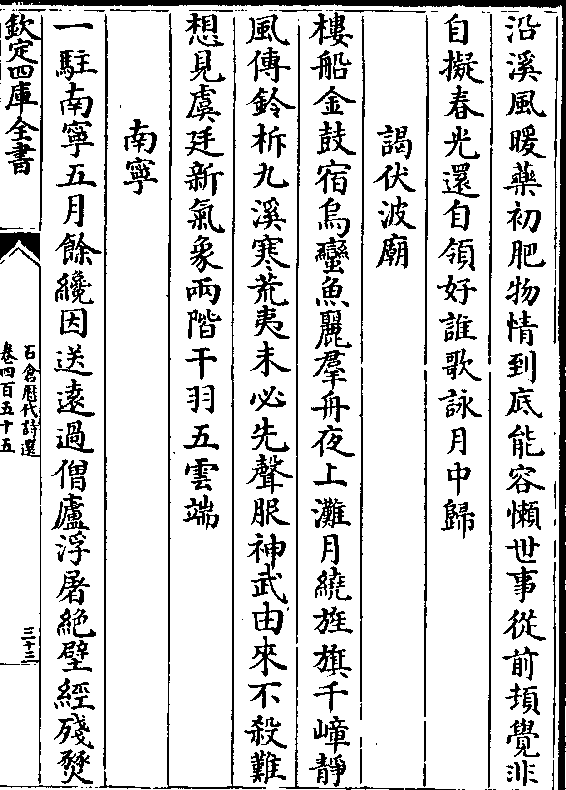 沿溪風暖藥初肥物情到底能容懶世事從前頓覺非
自擬春光還自領好誰歌詠月中歸
謁伏波廟
樓船金鼓宿烏蠻魚麗羣舟夜上灘月繞旌旗千嶂靜
風傳鈴柝九溪寒荒夷未必先聲服神武由來不殺難
想見虞廷新氣象兩階干羽五雲端
南寧
一駐南寧五月餘纔因送遠過僧廬浮屠絶壁經殘燹
欽定四庫全書
石倉歷代詩選
卷四百五十五
三十二